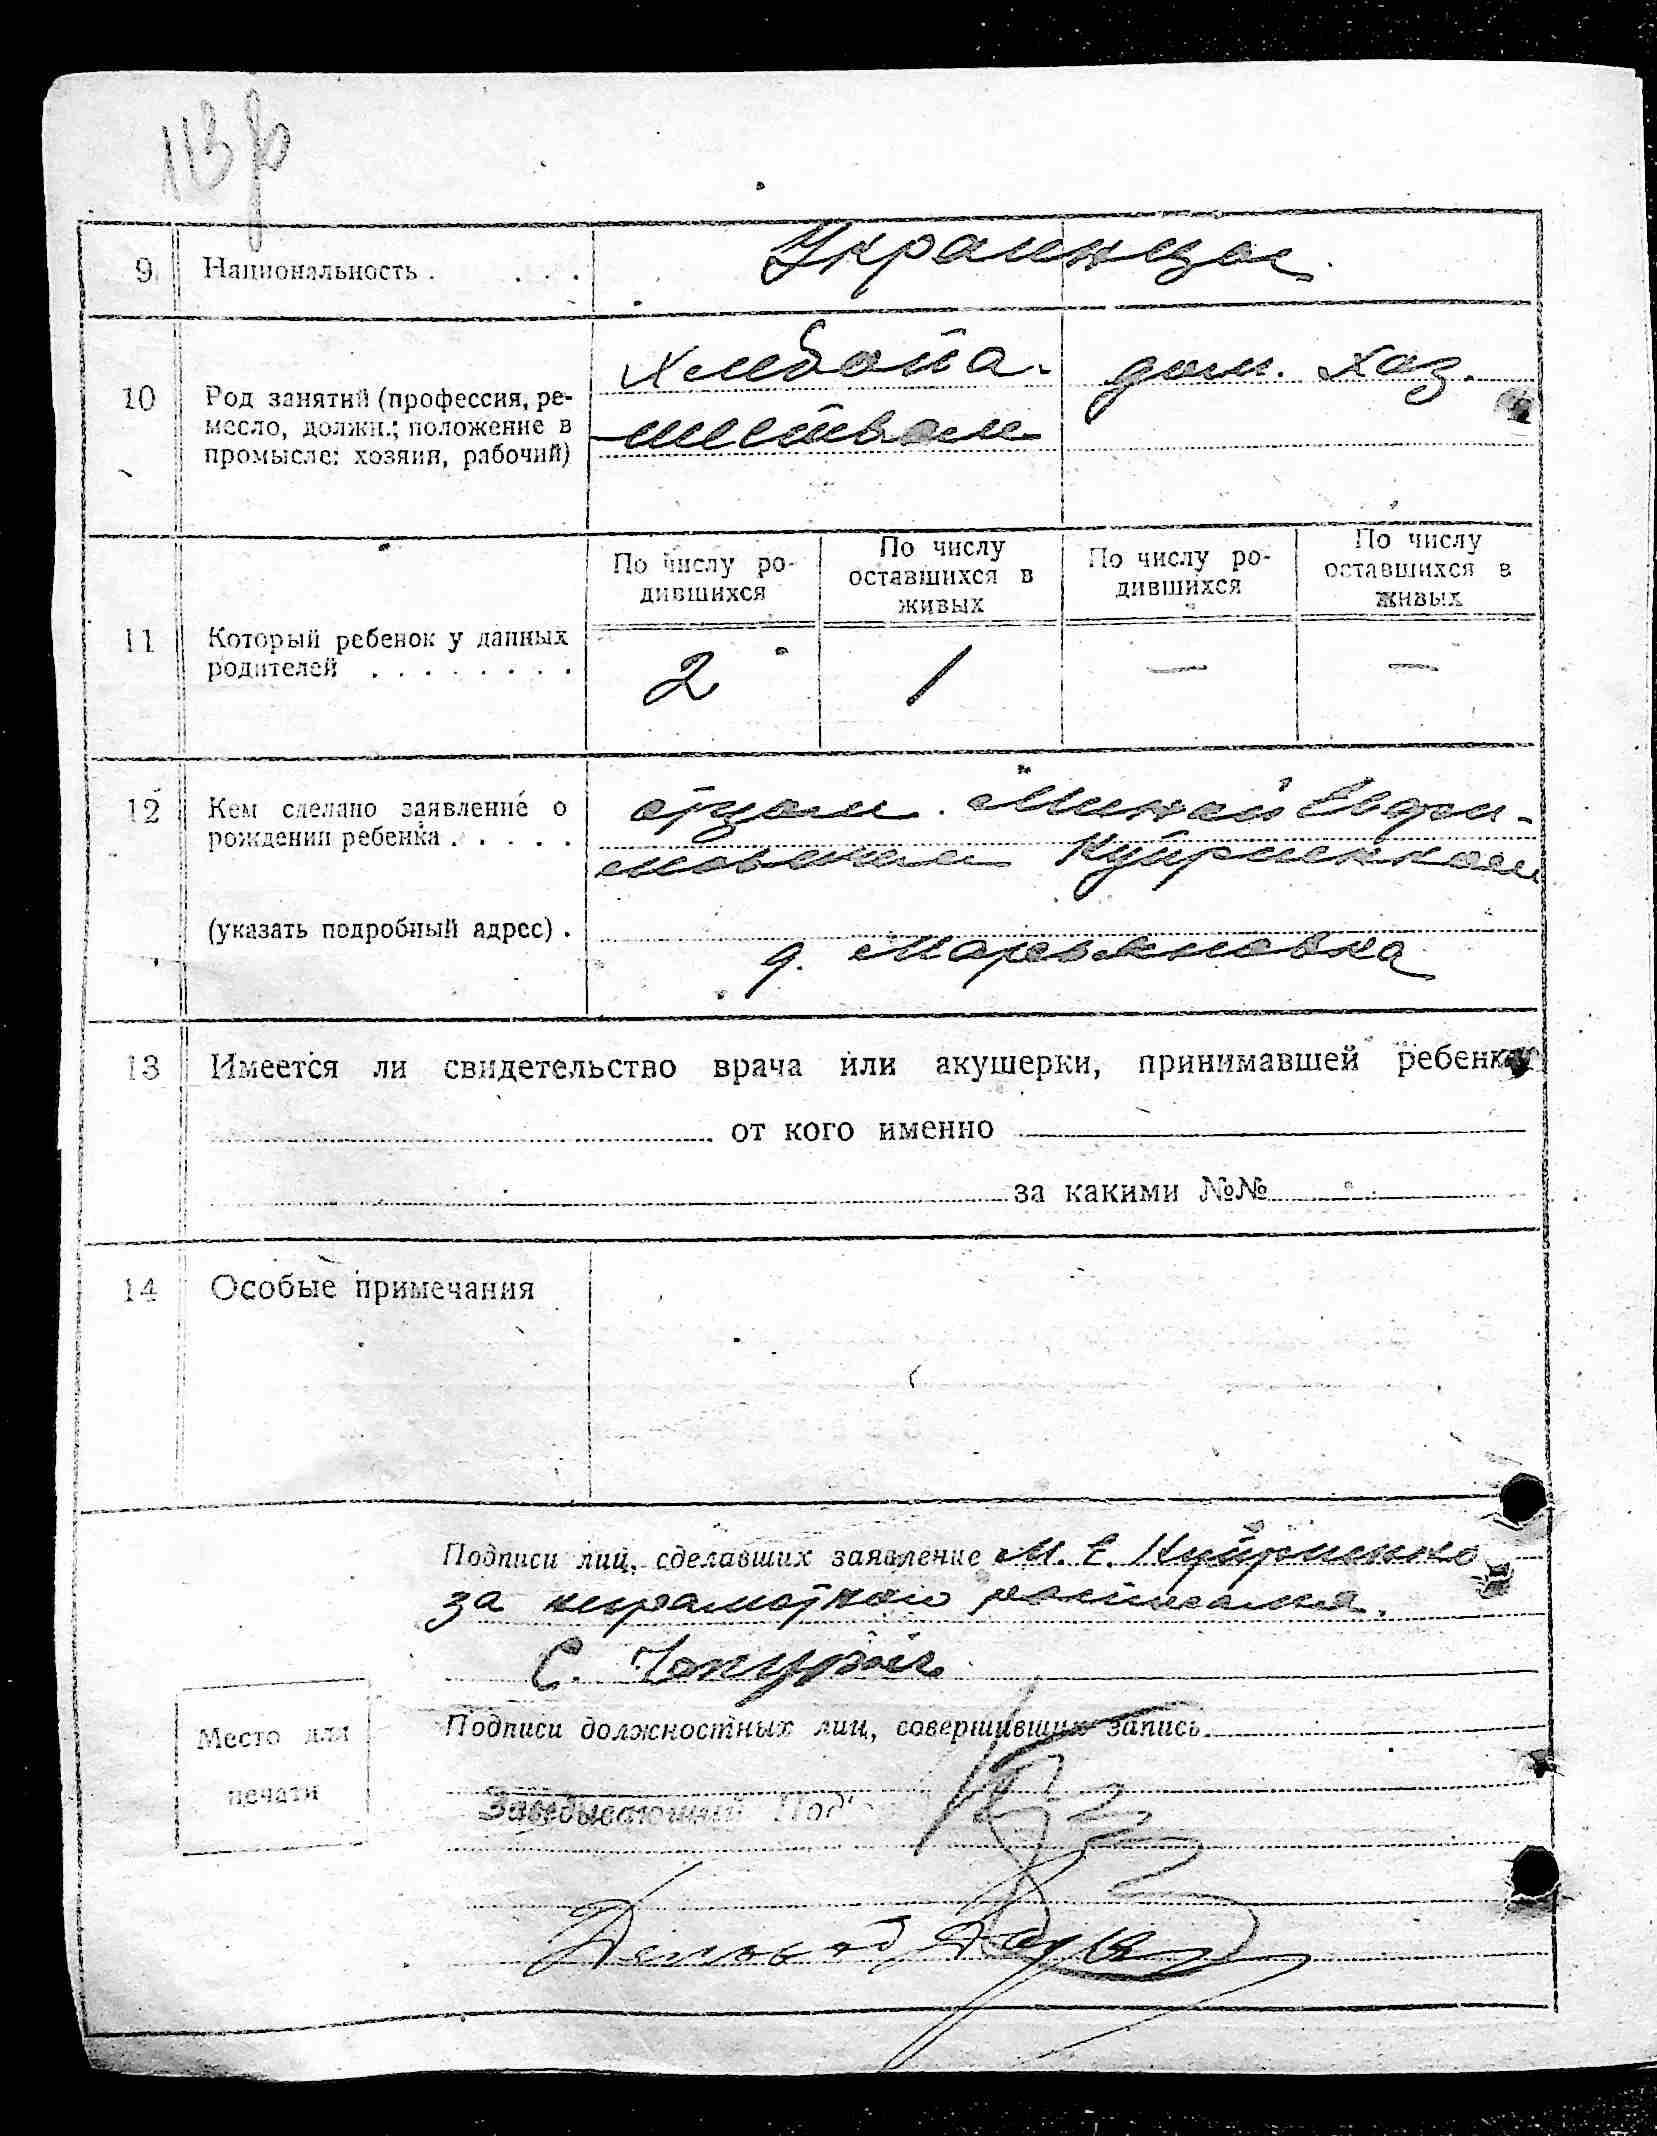 9 Национальность . . . . Украинцы
10 Род занятий (профессия, ре-
месло, должн.; положение в
промысле: хозяин, рабочий)
Хлебопа-
шеством
дом. хоз.
По числу ро-
дившихся
По числу
оставшихся в
живых
По числу ро-
дившихся
По числу
оставшихся в
живых
11 Который ребенок у данных
родителей . . . . . . . .
2 1 — —
12 Кем сделано заявление о
рождении ребенка . . . . .
отцом Минай Евфи-
мовичем Куприенком
(указать подробный адрес) .
д. Марьяновка
13 Имеется ли свидетельство врача или акушерки, принимавшей ребенка
от кого именно
за какими №№
14 Особые примечания
Подписи лиц, сделавших заявление М. Е. Куприенко
за неграмотного
С.
Место для
печати
Подписи должностных лиц, совершивших запись
Заведывающий Под